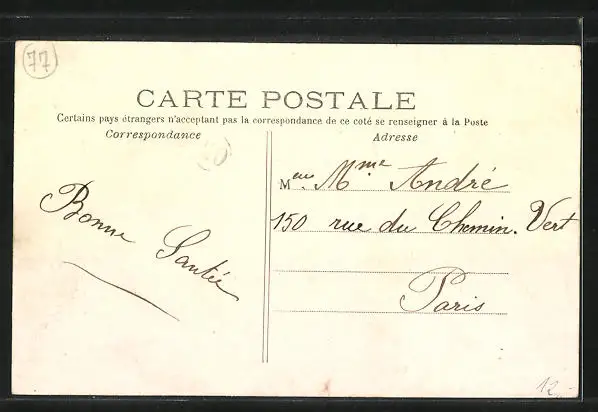 77
CARTE POSTALE
Certains pays étrangers n'acceptant pas la correspondance de ce coté se renseigner à la Poste
Correspondance
Adresse
Bonne Santée
M eur Mme André
150 rue du Chemin. Vert
Paris
12.-